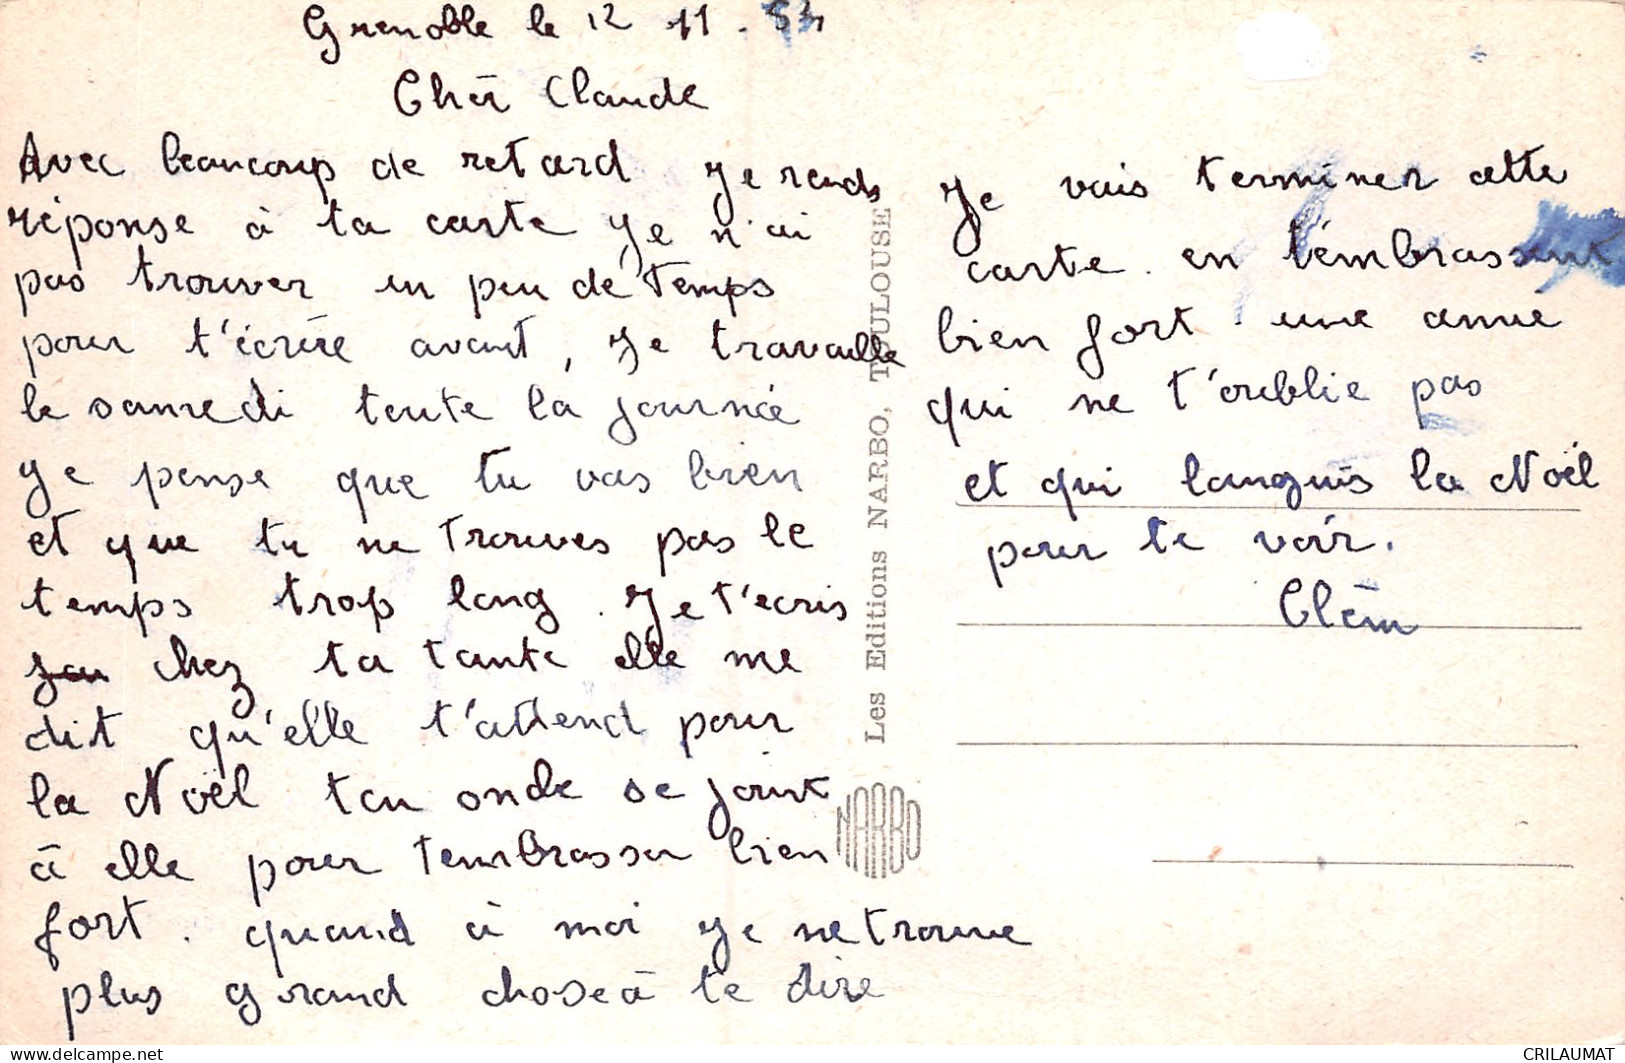 Grenoble le 12 11. 54
Cher Claude
Avec beaucoup de retard Je rends
réponse à ta carte Je n'ai
pas trouver un peu de temps
pour t'écrire avant, Je travaille
le samedi toute la journée
Je pense que tu vas bien
et que tu ne trouves pas le
temps trop long. Je t'ecris
chez ta tante elle me
dit qu'elle t'attend pour
la Noël ton oncle se joint
à elle pour t'embrasser bien
fort. quand à moi Je ne trouve
plus grand chose à te dire
Je vais terminer cette
carte. en t'embrassant
bien fort. une amie
qui ne t'oublie pas
et qui languis la Noël
pour te voir.
Clém
Les Editions NARBO, TOULOUSE
NARBO
delcampe.net
CRILAUMAT